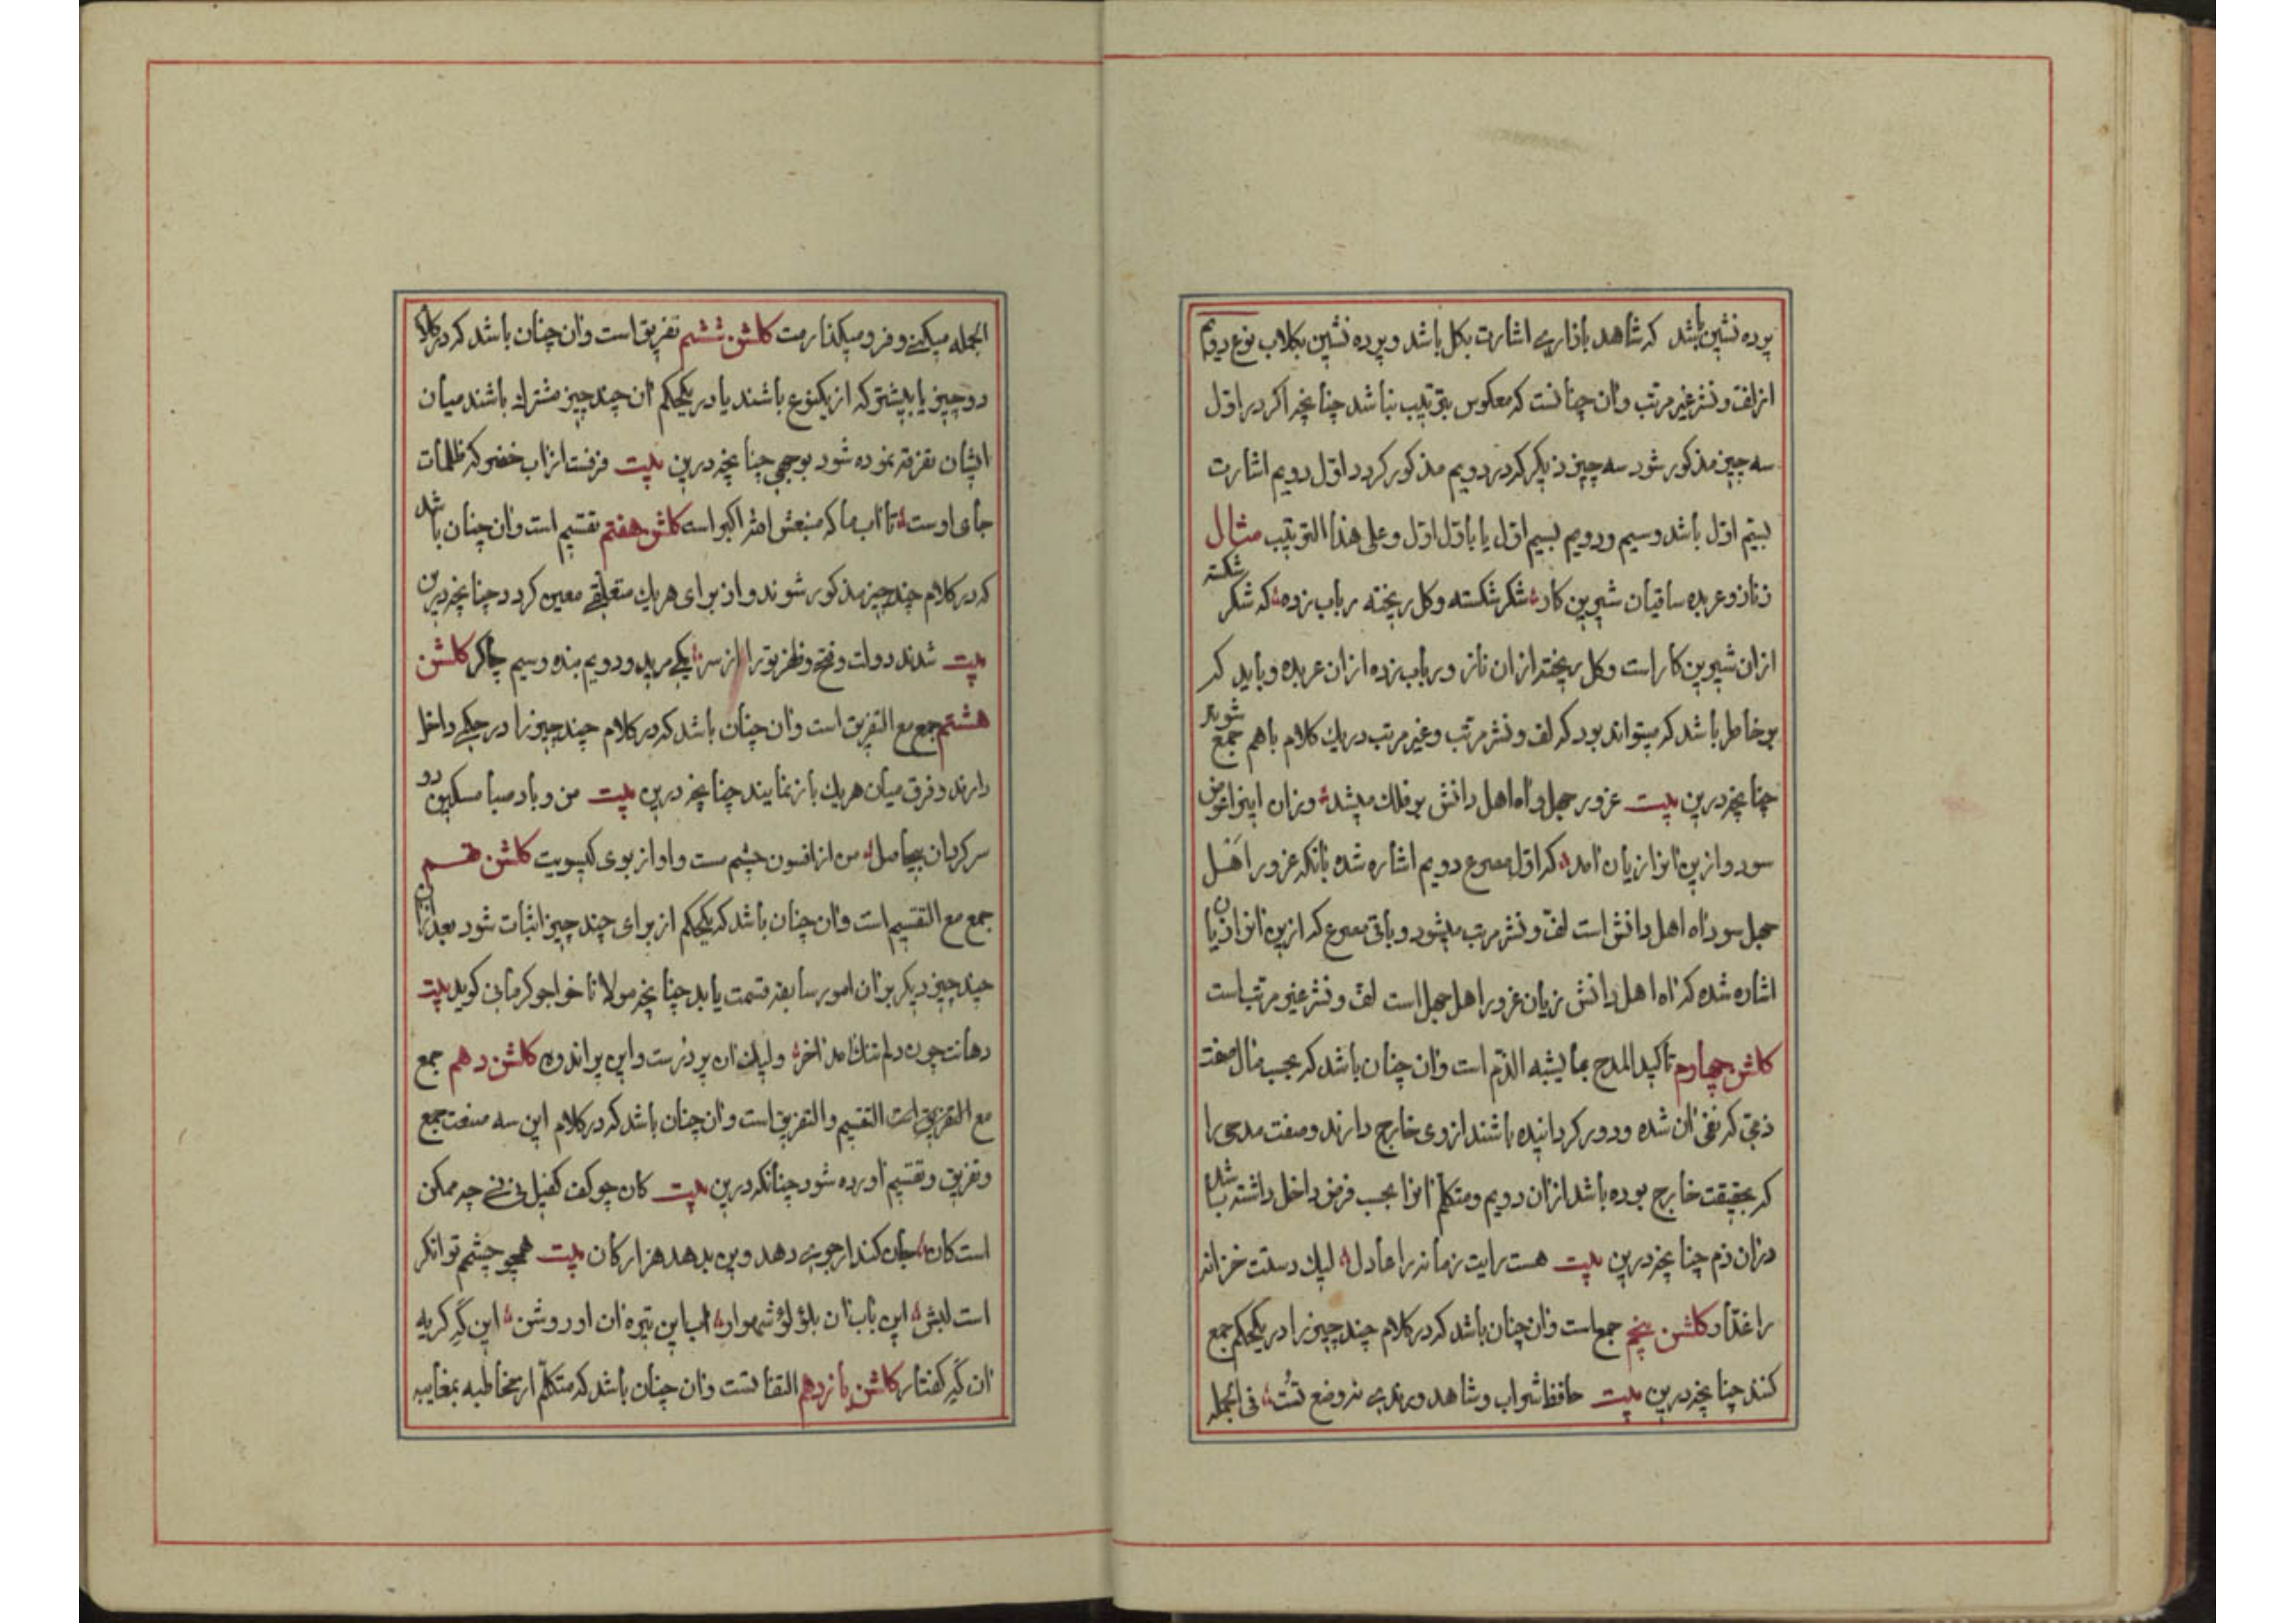 پرده نشین باشد که شاهد بازاری اشارت بکل باشد و پرده نشین بکلاب نوع دویم
از لف و نشر غیر مرتب وآن چنانست که معکوس بترتیب نباشد چنانچه اکر در اول
سه چیز مذکور شود سه چیز دیکر که در دویم مذکور کردد اول دویم اشارت
بسیم اول باشد وسیم ودویم بسیم اول یا باول اول وعلی هذا الترتیب مثال
زنان وعربده ساقیان شیرین کار شکر شکسته وکل ریخته رباب زده که شکر شکسته
ازان شیرین کار است وکل ریخته ازان ناز ورباب زده ازان عربده وباید که
بر خاطر باشد که میتواند بود که لف ونشر مرتب وغیر مرتب در یک کلام باهم جمع شوند
چنانچه درین بیت غرور جهل وآه اهل دانش بر فلک میشد وزان اینرا عوض
سود وازین آنرا زیان آمد که اول مصرع دویم اشاره شده بانکه غرور اهل
جهل سود آه اهل دانش است لف ونشر مرتب میشود وباقی مصرع که ازین آنرا زیان
اشاره شده که آه اهل دانش زیان غرور اهل جهل است لف ونشر غیر مرتب است
کلشن چهارم تأکید المدح بما یشبه الذم است وآن چنان باشد که بحسب مآل صفت
ذمی که نفی آن شده ودور کردانیده باشند ازوی خارج دارند وصفت مدحی را
که بحقیقت خارج بوده باشد ازان دویم ومتکلم آنرا بحسب فرض داخل داشته باشد
دران ذم چنانچه درین بیت هست رایت زمانه را عادل لیک دستت خزانه
را غدار کلشن پنجم جمع است وآن چنان باشد که در کلام چند چیز را در یکحکم جمع
کنند چنانچه درین بیت حافظ شراب وشاهد ورندی نه وضع تست فی الجمله
الجمله میکنی وفرو میکذارمت کلشن ششم تفریق است وآن چنان باشد که در کلام
دو چیز یا بیشتر که از یکنوع باشند یا در یکحکم آن چند چیز مشترک باشند میان
ایشان تفرقه نموده شود بوجهی چنانچه درین بیت فرقست از آب خضر که ظلمات
جای اوست تا آب ما که منبعش الله اکبر است کلشن هفتم تقسیم است وآن چنان باشد
که در کلام چند چیز مذکور شوند واز برای هریک متعلقی معین کردد چنانچه درین
بیت شدند دولت وفتح وظفر ترا از سر یکی مرید ودویم بنده وسیم چاکر کلشن
هشتم جمع مع التفریق است وآن چنان باشد که در کلام چند چیز را در حکمی داخل
دارند وفرق میان هریک باز نمایند چنانچه درین بیت من وباد صبا مسکین دو
سرکردان بیحاصل من از افسون چشم مست واو از بوی کیسویت کلشن نهم
جمع مع التقسیم است وآن چنان باشد که یکحکم از برای چند چیز اثبات شود بعد ازان
چند چیز دیکر بران امور سابقه قسمت یابد چنانچه مولانا خواجو کرمانی کوید بیت
دهانت چون دلم تنک آمد آخر ولیک آن پر درست واین پر اندوه کلشن دهم جمع
مع التفریق است التقسیم والتفریق است وآن چنان باشد که در کلام این سه صنعت جمع
وتفریق وتقسیم آورده شود چنانکه درین بیت کان چو کف کفیل نی نی چه ممکن
است کان جان کند ار جوی دهد وین بدهد هزار کان بیت همچو چشمم توانکر
است لبش این بآب آن بلؤلؤ شهوار آب این تیره آن او روشن این که کریه
آن که کفتار کلشن یازدهم التفاتست وآن چنان باشد که متکلم از مخاطبه بمغایبه